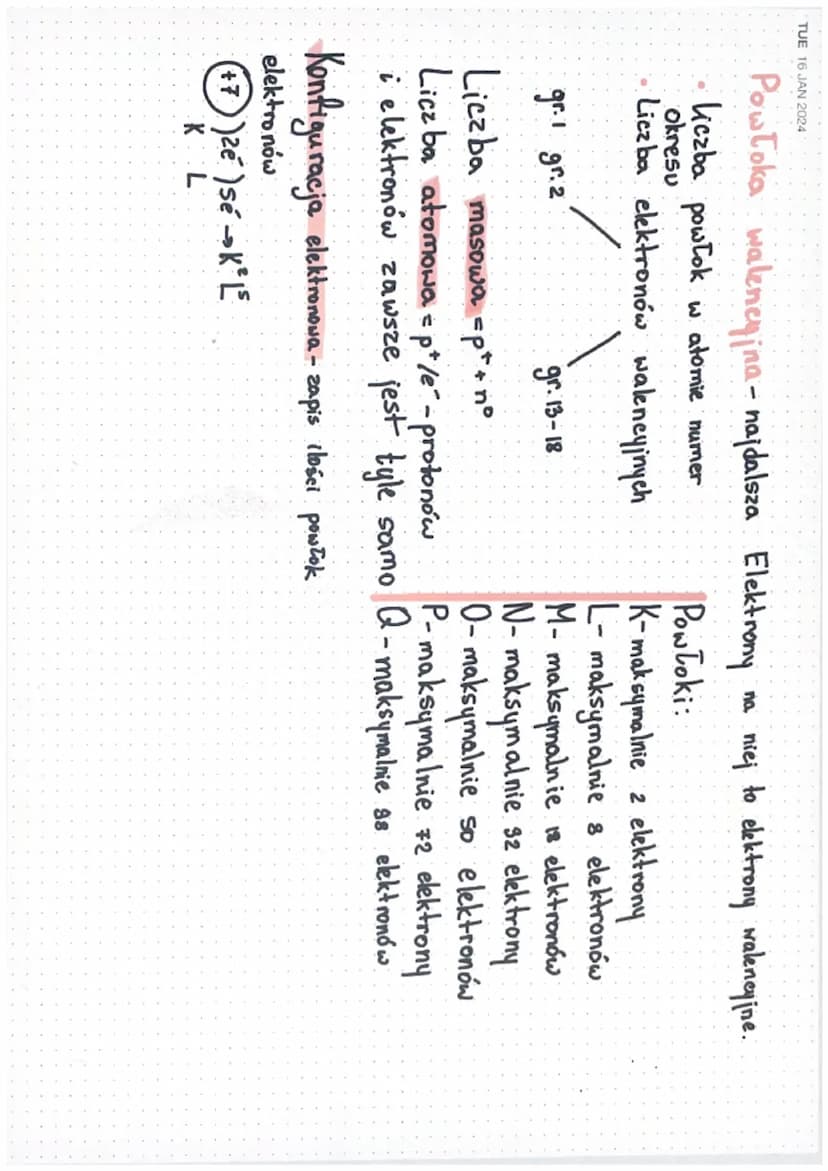 TUE 16 JAN 2024
Powłoka walencyjna - najdalsza Elektrony na niej to elektrony walencyjne.
• liczba powłok w atomie numer
okresu
• Liczba elektronów walencyjnych
gr.1 gr.2
gr.13-18
Liczba masowa = p⁺ + n⁰
Liczba atomowa = p⁺/e⁻ - protonów
i elektronów zawsze jest tyle samo
Konfiguracja elektronowa - zapis ilości powłok
elektronów
+7 )2e⁻ )5e⁻ → K²L⁵
K L
Powłoki:
K - maksymalnie 2 elektrony
L - maksymalnie 8 elektronów
M - maksymalnie 18 elektronów
N - maksymalnie 32 elektrony
O - maksymalnie 50 elektronów
P - maksymalnie 72 elektrony
Q - maksymalnie 98 elektronów